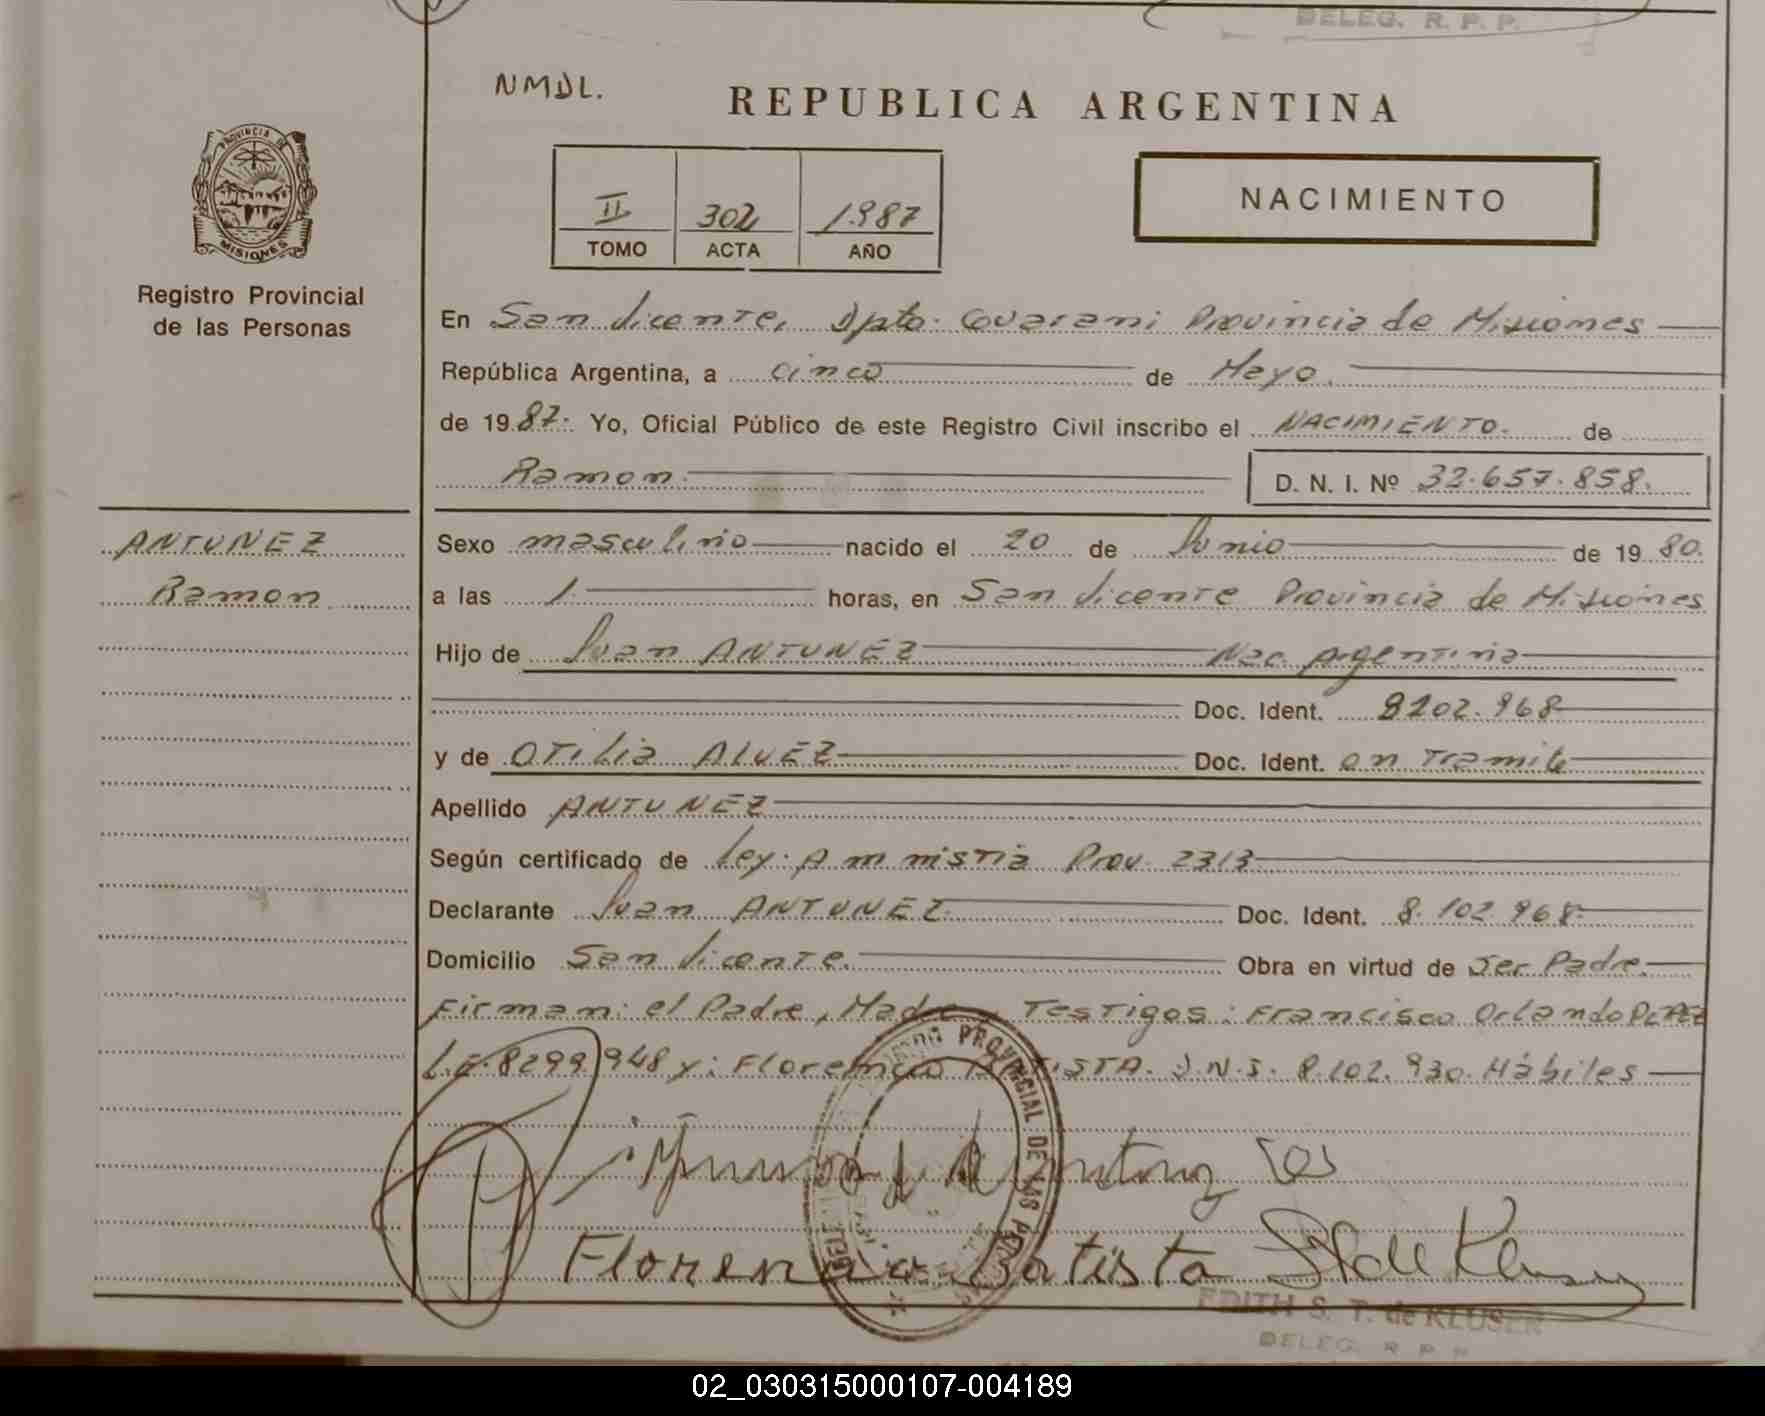 DELEG. R. P. P.
NMDL.
REPUBLICA ARGENTINA
PROVINCIA DE
MISIONES
Registro Provincial
de las Personas
II 302 1.987
TOMO ACTA AÑO
NACIMIENTO
En San Vicente, Dpto. Guarani Provincia de Misiones
República Argentina, a cinco de Mayo.
de 19 87. Yo, Oficial Público de este Registro Civil inscribo el NACIMIENTO. de
Ramon. D. N. I. Nº 32.657.858.
ANTUNEZ
Ramon
Sexo masculino nacido el 20 de Junio de 19 80.
a las 1 horas, en San Vicente Provincia de Misiones
Hijo de Juan ANTUNEZ Nac. Argentina
Doc. Ident. 8102.968
y de OTILIA ALVEZ Doc. Ident. en Tramite
Apellido ANTUNEZ
Según certificado de Ley. Ammistia Prov. 2313
Declarante Juan ANTUNEZ Doc. Ident. 8.102.968
Domicilio San Vicente. Obra en virtud de Ser Padre.
Firman: el Padre, Madre, Testigos: Francisco Orlando
L.E. 8299948 y: Florencio BATISTA. D.N.I. 8.102.930. Hábiles
PROVINCIAL DE LAS
Florencio Batista
EDITH S. T. de KLUSER
DELEG. R. P. P.
02_030315000107-004189